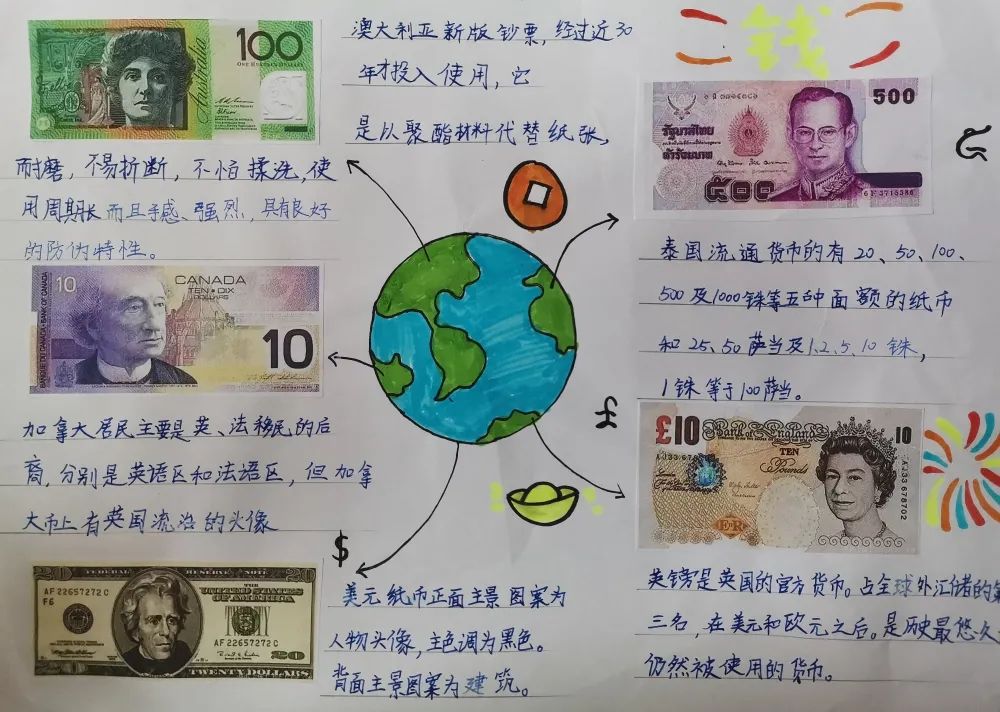 钱
100
ONE HUNDRED DOLLARS
Australia
澳大利亚新版钞票，经过近30
年才投入使用，它
是以聚酯材料代替纸张，
耐磨，不易折断，不怕揉洗，使
用周期长而且手感强烈，具有良好
的防伪特性。
10
CANADA
TEN·DIX
DOLLARS
10
加拿大居民主要是英、法移民的后
裔，分别是英语区和法语区，但加拿
大币上有英国流治的头像
$
20
FEDERAL RESERVE NOTE
20
AF 22657272 C
F6
THE
UNITED STATES
OF AMERICA
AF 22657272 C
20
TWENTY DOLLARS
美元纸币正面主景图案为
人物头像，主色调为黑色。
背面主景图案为建筑。
500
รัฐบาลไทย
ห้าร้อยบาท
๕๐๐
6F 3715386
泰国流通货币的有20、50、100、
500及1000铢等五种面额的纸币
和25、50萨当及1、2、5、10铢，
1铢等于100萨当。
£
£10
Bank of England
10
TEN
Pounds
AJ33 678702
E·R
英镑是英国的官方货币。占全球外汇储的第
三名，在美元和欧元之后。是历史最悠久
仍然被使用的货币。